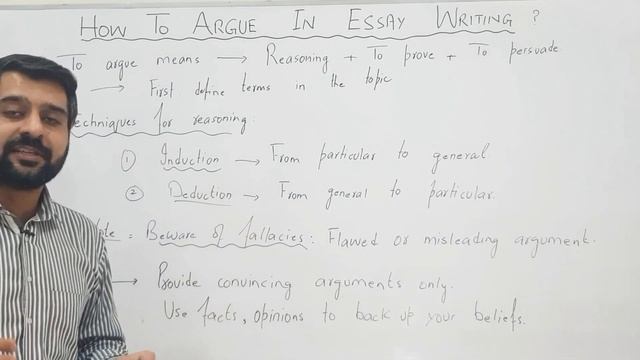 HOW TO ARGUE IN ESSAY WRITING ?
To argue means → Reasoning + To prove + To persuade
→ First define terms in the topic
Techniques for reasoning:
① Induction → From particular to general
② Deduction → From general to particular.
= Beware of fallacies : Flawed or misleading argument.
→ Provide convincing arguments only.
Use facts, opinions to back up your beliefs.